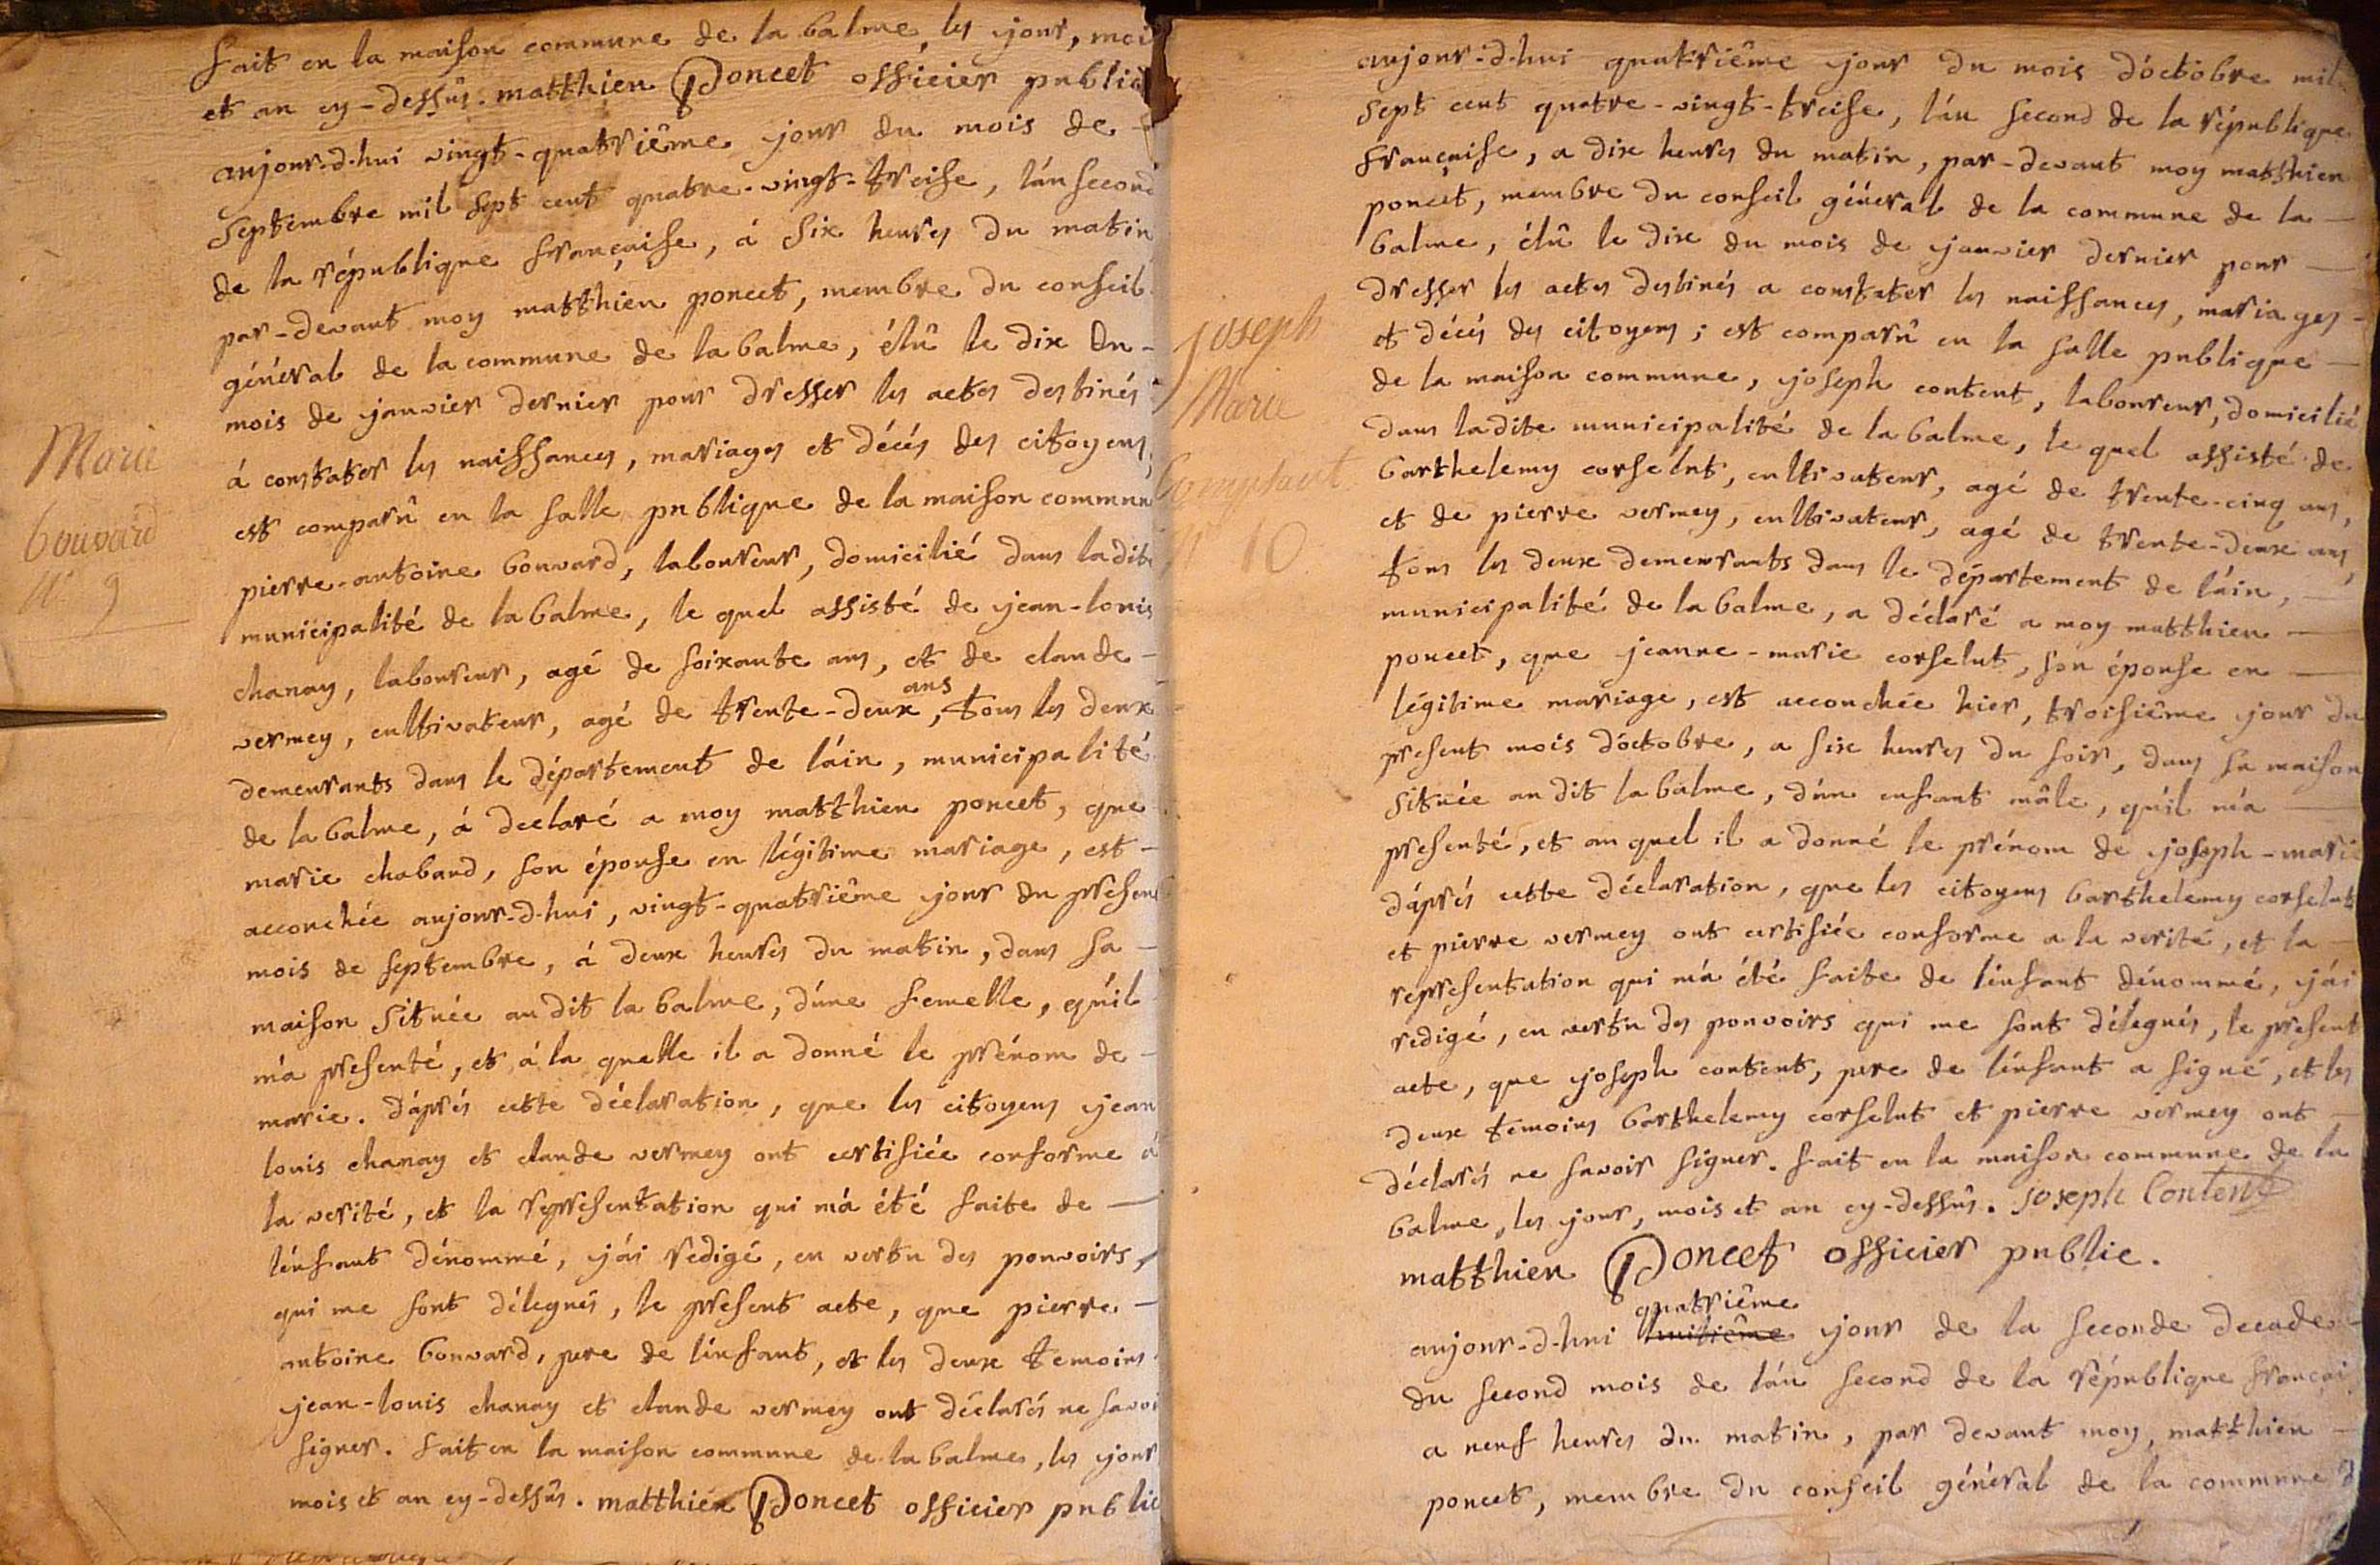 fait en la maison commune de la balme, les jour, moi
et an cy-dessûs. matthieu Poncet officier public
aujour-d-hui vingt-quatriême jour du mois de
septembre mil sept cent quatre-vingt-treise, l'án second
de la république française, á six heures du matin
par-devant moy matthieu poncet, membre du conseil
général de la commune de la balme, élû le dix du
mois de janvier dernier pour dresser les actes destinés
á constater les naissances, mariages et décés des citoyens,
est comparû en la salle publique de la maison commune
Marie
bouvard
N° 9
pierre-antoine bouvard, laboureur, domicilié dans ladite
municipalité de la balme, le quel assisté de jean-louis
chanay, laboureur, agé de soixante ans, et de claude
vermey, cultivateur, agé de trente-deux ans, tous les deux
demeurants dans le département de l'áin, municipalité
de la balme, á declaré a moy matthieu poncet, que
marie chaband, son épouse en légitime mariage, est
accouchée aujour-d-hui, vingt-quatriême jour du present
mois de septembre, á deux heures du matin, dans sa
maison située au dit la balme, d'úne femelle, qu'il
m'á presenté, et á la quelle il a donné le prénom de
marie. d'áprés cette déclaration, que les citoyens jean
louis chanay et claude vermey ont certifiée conforme á
la verité, et la representation qui m'á été faite de
l'énfant dénommé, j'ái redigé, en vertu des pouvoirs,
qui me sont délegués, le present acte, que pierre
antoine bouvard, pere de l'énfant, et les deux temoins
jean-louis chanay et claude vermey ont déclarés ne savoi
signer. fait en la maison commune de la balme, les jour
mois et an cy-dessûs. matthieu Poncet officier public
aujour-d-hui quatriême jour du mois d'óctobre mil
sept cent quatre-vingt-treise, l'án second de la république
française, a dix heures du matin, par-devant moy matthieu
poncet, membre du conseil général de la commune de la
balme, élû le dix du mois de janvier dernier pour
dresser les actes destinés a constater les naissances, mariages
et décés des citoyens; est comparû en la salle publique
Joseph
Marie
Comptent
N° 10
de la maison commune, joseph content, laboureur, domicilié
dans ladite municipalité de la balme, le quel assisté de
barthelemy corselut, cultivateur, agé de trente-cinq ans,
et de pierre vermey, cultivateur, agé de trente-deux ans,
tous les deux demeurants dans le département de l'áin,
municipalité de la balme, a déclaré a moy matthieu
poncet, que jeanne-marie corselut, son épouse en
légitime mariage, est accouchée hier, troisiême jour du
present mois d'óctobre, a six heures du soir, dans sa maison
située au dit la balme, d'ún enfant mâle, qu'il m'á
presenté, et au quel il a donné le prénom de joseph-marie
d'áprés cette déclaration, que les citoyens barthelemy corselut
et pierre vermey ont certifiée conforme a la verité, et la
representation qui m'á été faite de l'énfant dénommé, j'ái
redigé, en vertu des pouvoirs qui me sont délegués, le present
acte, que joseph content, pere de l'énfant a signé, et les
deux temoins barthelemy corselut et pierre vermey ont
déclarés ne savoir signer. fait en la maison commune de la
balme, les jour, mois et an cy-dessûs. Joseph Content
matthieu Poncet officier public.
aujour-d-hui huitiême quatriême jour de la seconde decade
du second mois de l'án second de la république françai
a neuf heures du matin, par devant moy, matthieu
poncet, membre du conseil général de la commune d